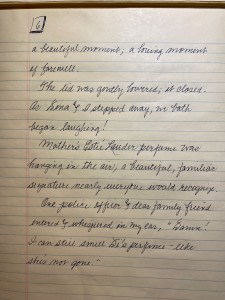 6
a beautiful moment; a loving moment
of farewell.
The lid was gently lowered; it closed.
As Fiona & I stepped away, we both
began laughing!
Mother's Estée Lauder perfume was
hanging in the air, a beautiful, familiar
signature nearly everyone would recognize.
One police officer & dear family friend
entered & whispered in my ear, "Dawn!
I can still smell perfume - like
she's not gone."